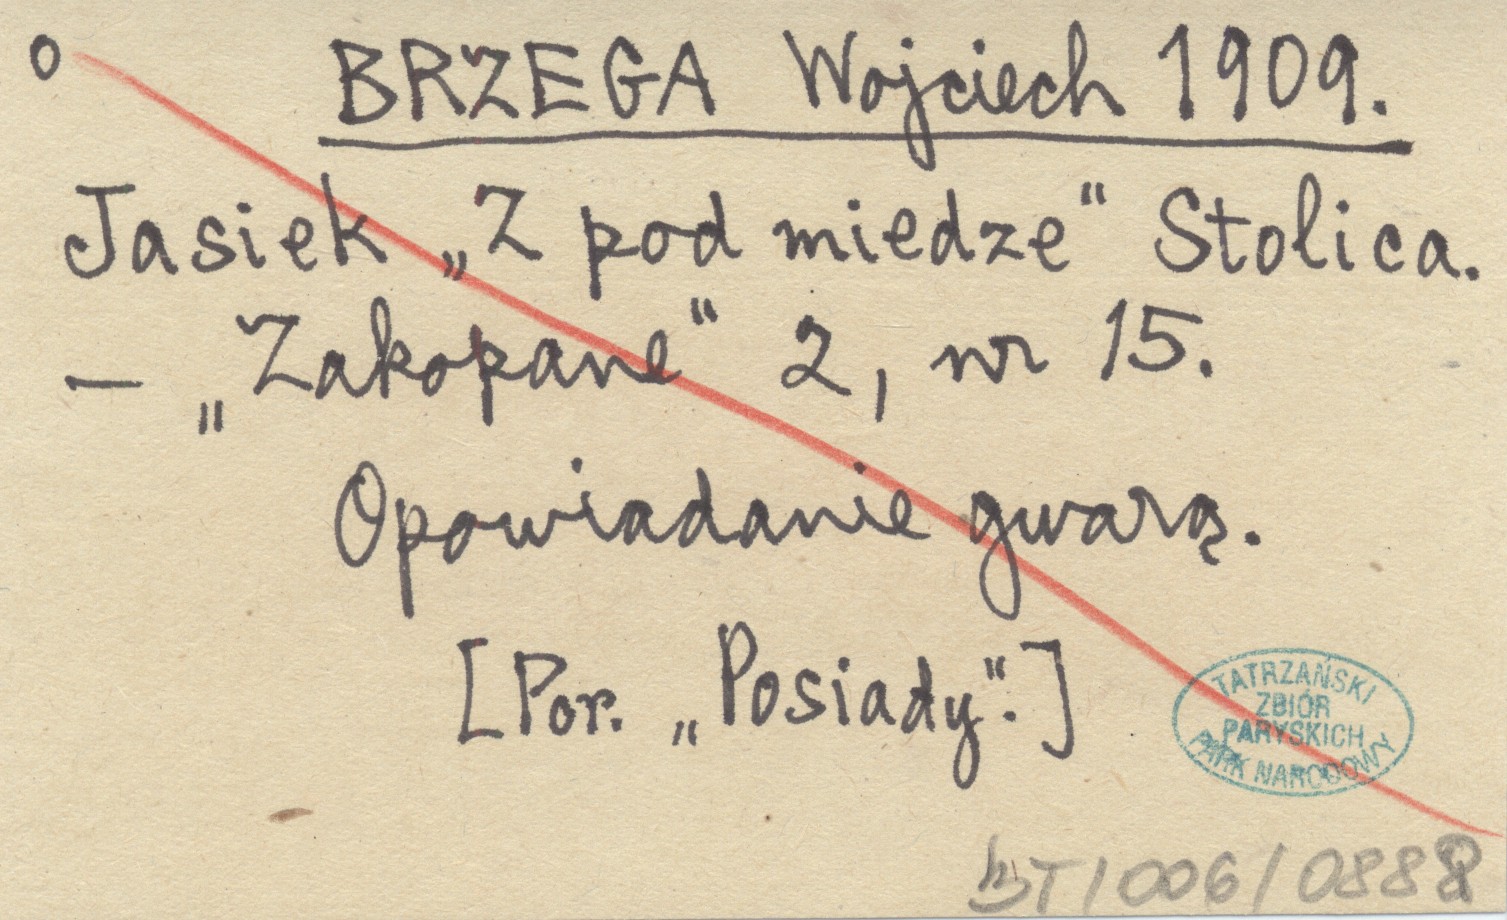 o BRZEGA Wojciech 1909.
Jasiek „Z pod miedze" Stolica.
— „Zakopane" 2, nr 15.
Opowiadanie gwarą.
[Por. „Posiady".]
TATRZAŃSKI
ZBIÓR
PARYSKICH
PARK NARODOWY
BT/006/0888